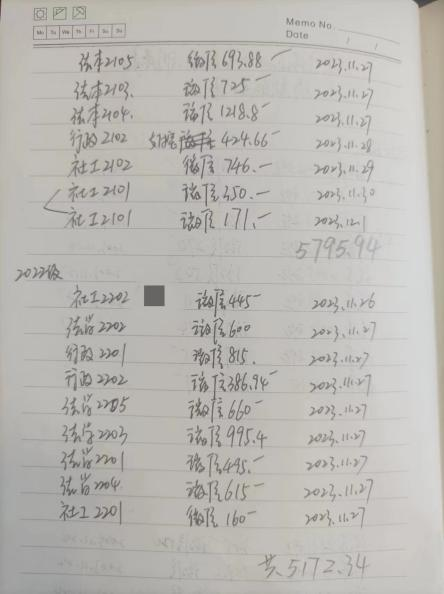 Memo No.
Mo Tu We Th Fr Sa Su
Date / /
法本2105 微信693.88一 2023.11.27
法本2103 微信725一 2023.11.27
法本2104. 微信1218.8一 2023.11.27
行政2102 424.66一 2023.11.28
社工2102 微信746.一 2023.11.29
社工2101 微信350.一 2023.11.30
社工2101 微信171.一 2023.12.1
5795.94
2022级
社工2202 微信445一 2023.11.26
法学2202 微信600 2023.11.27
行政2201 微信815. 2023.11.27
行政2202 微信386.94一 2023.11.27
法学2205 微信660一 2023.11.27
法学2203 微信995.4 2023.11.27
法学2201 微信495.一 2023.11.27
法学2204. 微信615一 2023.11.27
社工2201 微信160一 2023.11.27
共.5172.34